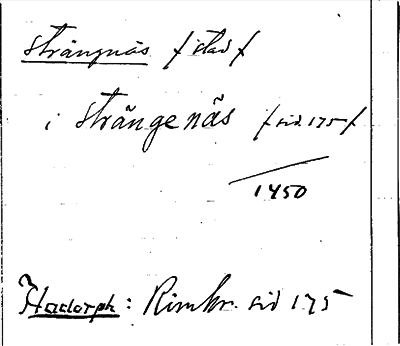 Strängnäs / stad /
i Strängenäs / sid. 175 /
1450
Hadorph: Rimkr. sid 175